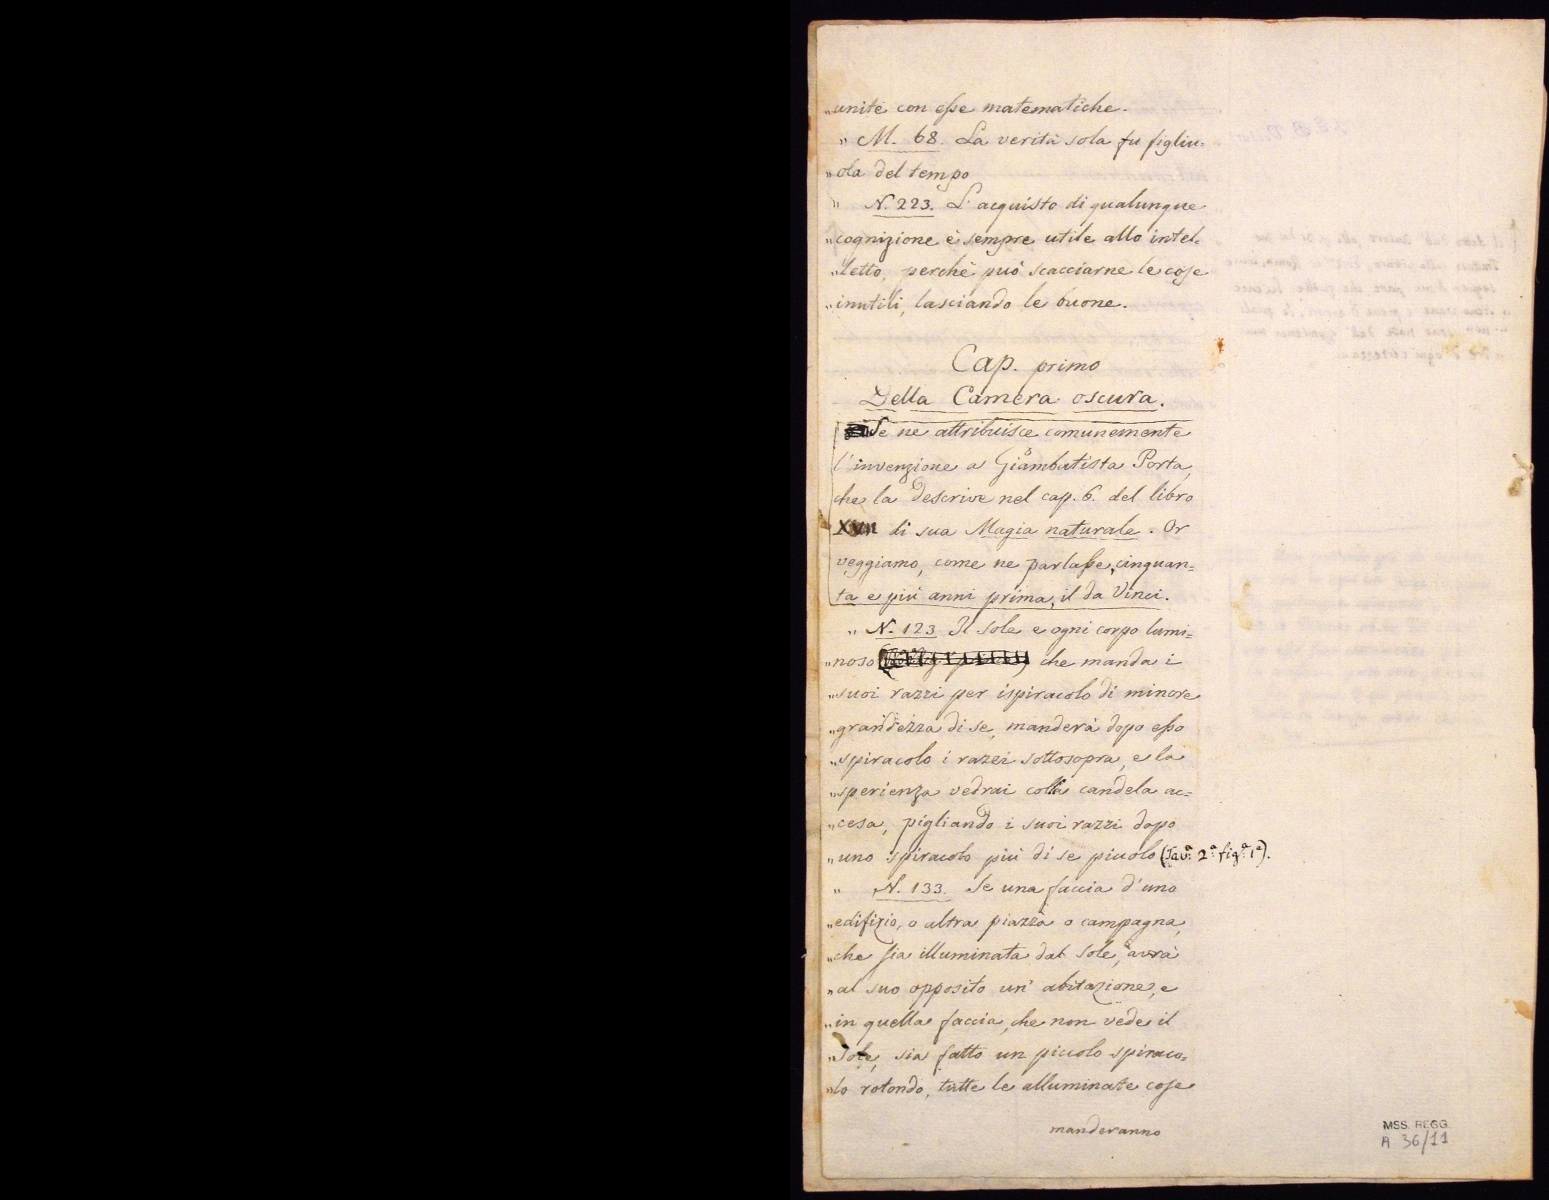 „unite con esse matematiche.
„ M. 68. La verità sola fu figliu=
„ola del tempo
„ N. 223. L'acquisto di qualunque
„cognizione è sempre utile allo intel=
„letto, perchè può scacciarne le cose
„inutili, lasciando le buone.
Cap. primo
Della Camera oscura.
Se ne attribuisce comunemente
l'invenzione a Giambatista Porta,
che la descrive nel cap. 6. del libro
XVII di sua Magia naturale. Or
veggiamo, come ne parlasse, cinquan=
ta e più anni prima, il da Vinci.
„ N. 123 Il sole e ogni corpo lumi=
„noso che manda i
„suoi razzi per ispiracolo di minore
„grandezza di se, manderà dopo esso
„spiracolo i razzi sottosopra, e la
„sperienza vedrai colla candela ac=
„cesa, pigliando i suoi razzi dopo
„uno spiracolo più di se piccolo (Tav.ª 2.ª fig.ª 1ª).
„ N. 133. Se una faccia d'uno
„edifizio, o altra piazza o campagna,
„che sia illuminata dal sole, avrà
„al suo opposito un' abitazione, e
„in quella faccia, che non vede il
„Sole, sia fatto un piccolo spiraco=
„lo rotondo, tutte le alluminate cose
manderanno
MSS. REGG.
A 36/11